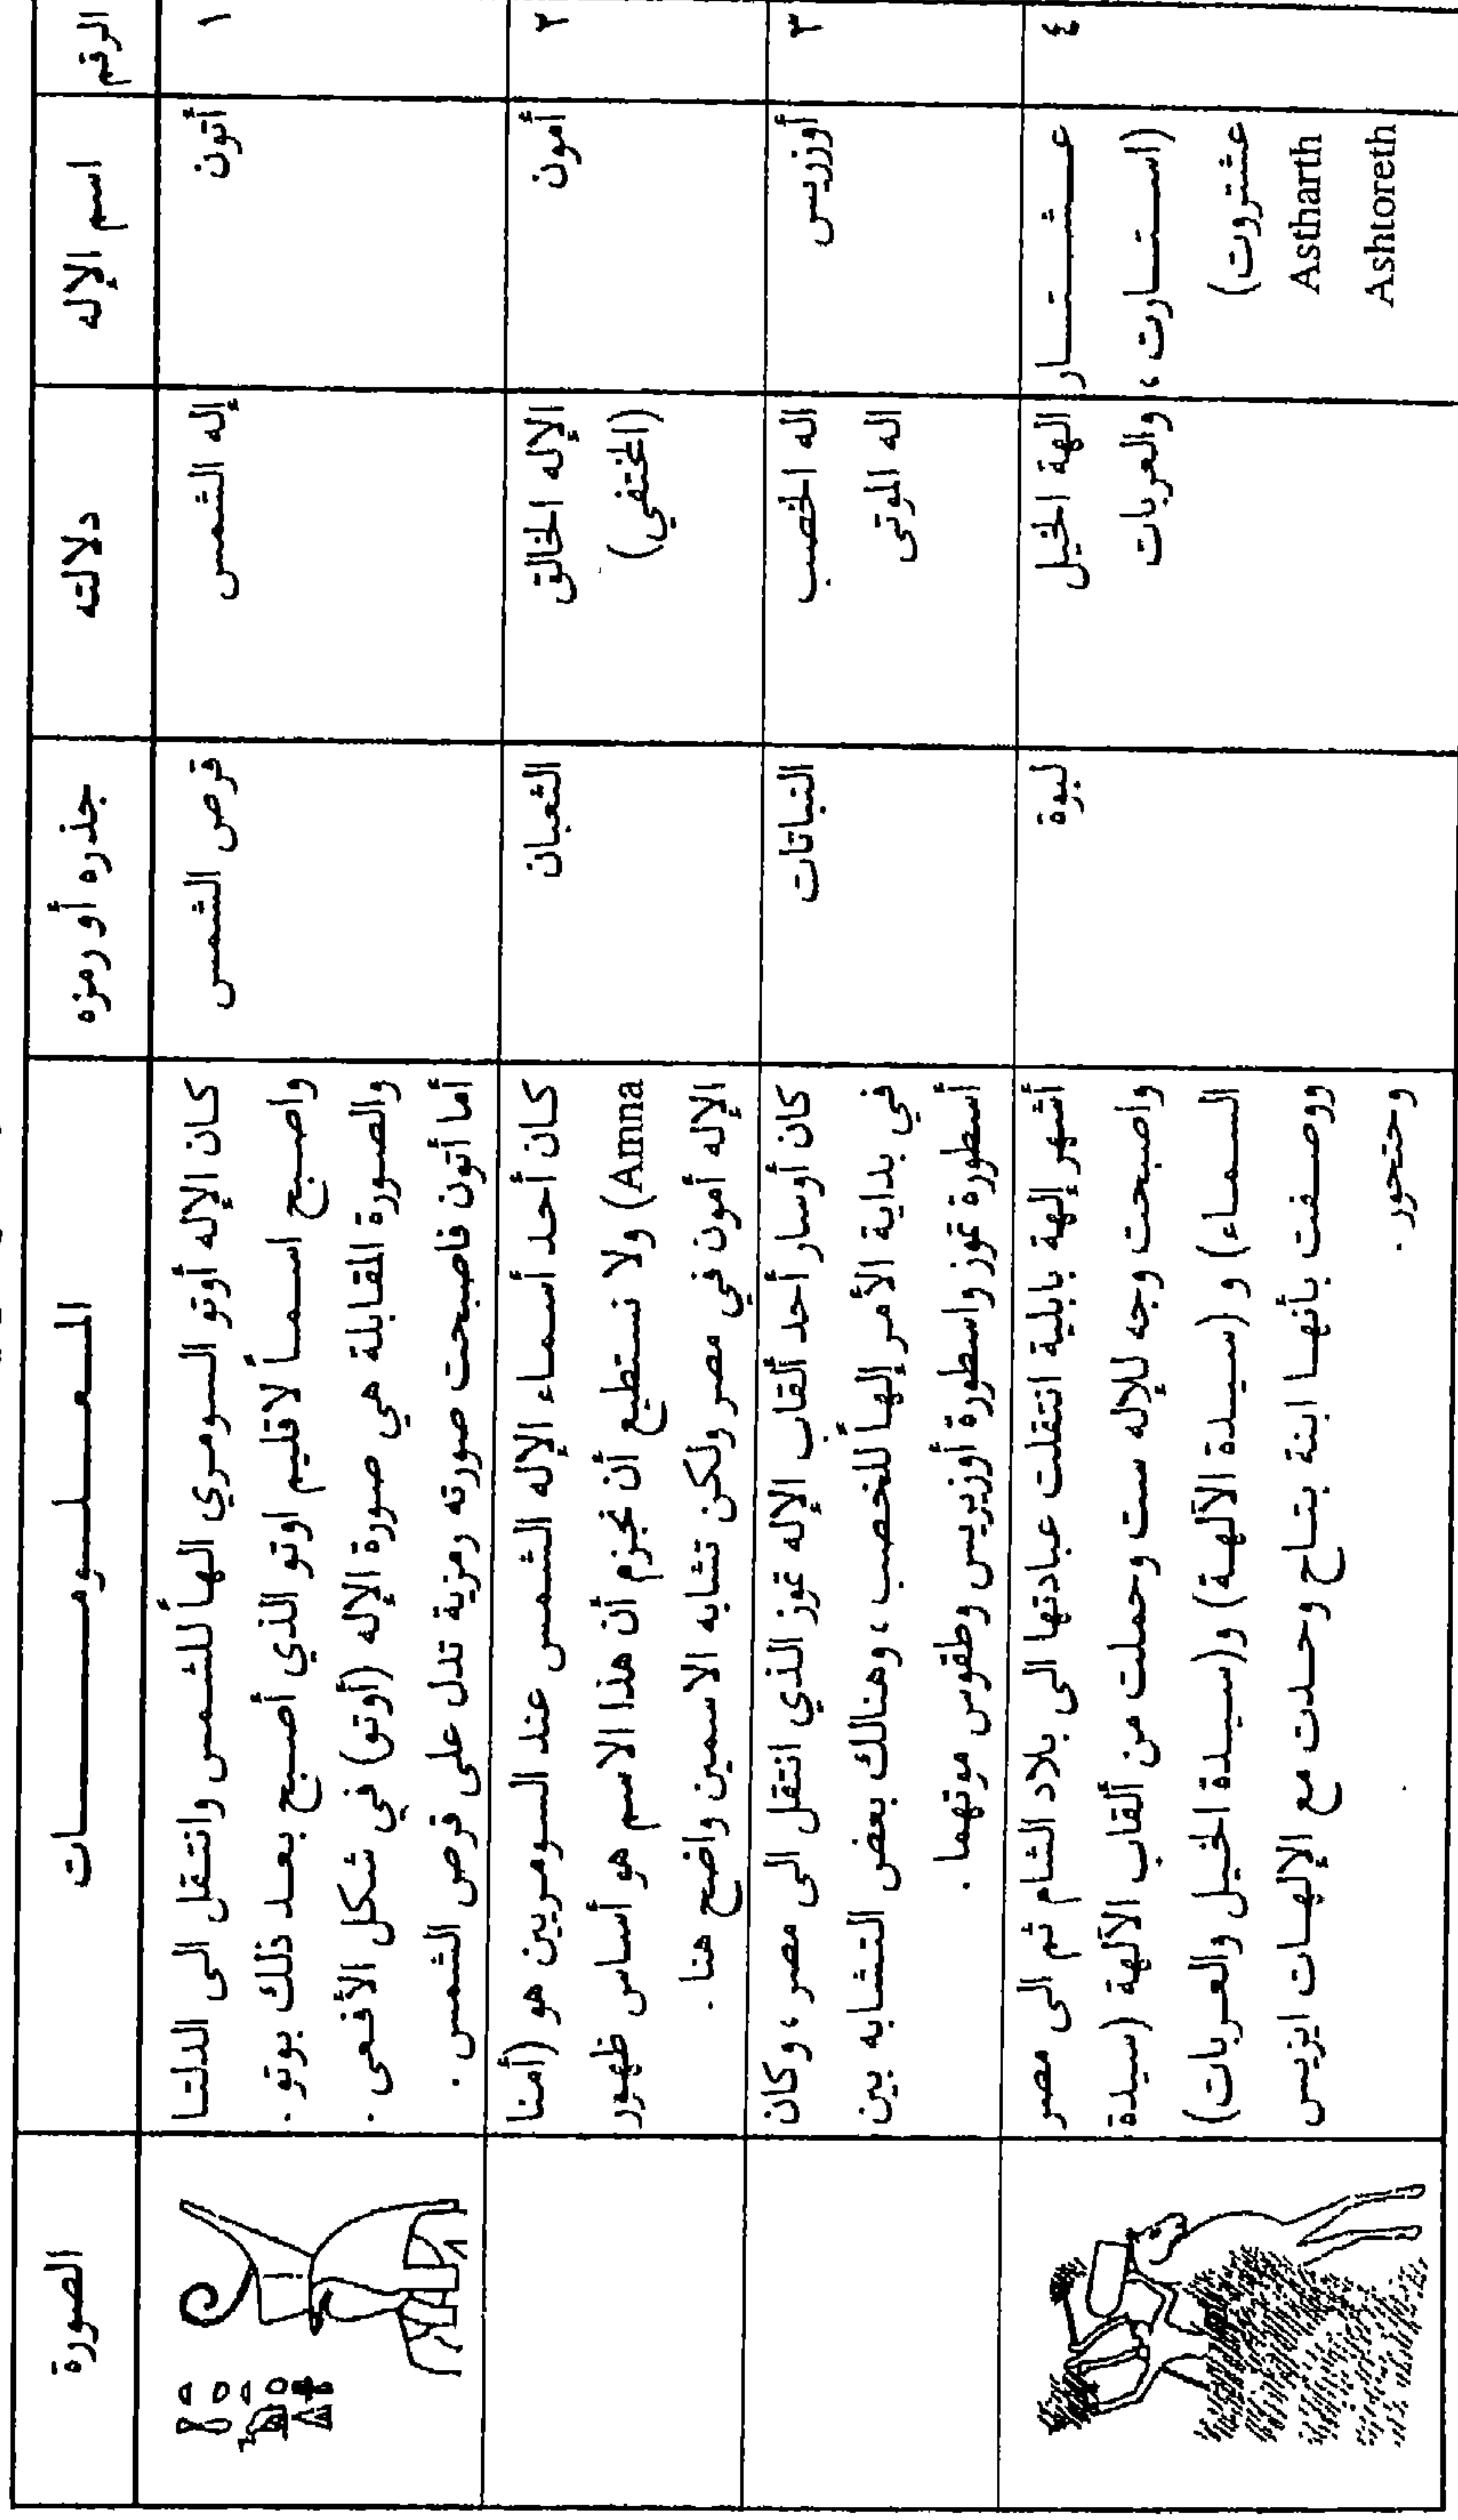 الرقم	اسم الإله	دلالته	جذره أو رمزه	المعلومات	الصورة
١	أتون	إله الشمس	قرص الشمس
كان الإله أوتو السومري الهاً للشمس وانتقل الى الدلتا
واصبح اسماً لاقليم اوتو الذي أصبح بعد ذلك بوتو .
والصورة المقابلة هي صورة الإله (أوتو) في شكل الأفعى .
أما أتون فاصبحت صورته رمزية تدل على قرص الشمس .
٢	أمون	الإله الخالق
(المختفي)
الثعبان
كان أحد أسماء الإله الشمس عند السومريين هو (أمنا
Amna) ولا نستطيع أن نجزم أن هذا الاسم هو أساس ظهور
الإله أمون في مصر ولكن تشابه الاسمين واضح هنا .
٣	أوزريس	اله الخصب
اله الموتى
النباتات
كان أوسار أحد ألقاب الإله تموز الذي انتقل الى مصر ، وكان
في بداية الأمر إلهاً للخصب ، وهنالك بعض التشابه بين
أسطورة تموز واسطورة أوزيريس وطقوس موتهما .
٤	عشتار
(استارت ،
عشتروت)
Astharth
Ashtoreth
الهة الخيل
والعربات
لبوة
أشهر إلهة بابلية انتقلت عبادتها الى بلاد الشام ثم الى مصر
واصبحت وجه للإله ست وحملت من ألقاب الآلهة (سيدة
السماء) و (سيدة الآلهة) و(سيدة الخيل والعربات)
ووصفت بأنها ابنة بتاح وحدت مع الإلهات ايزيس
وحتحور .